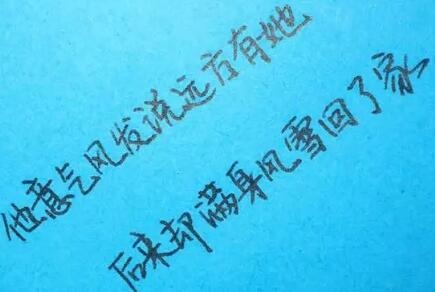 他意气风发说远方有她
后来却满身风雪回了家